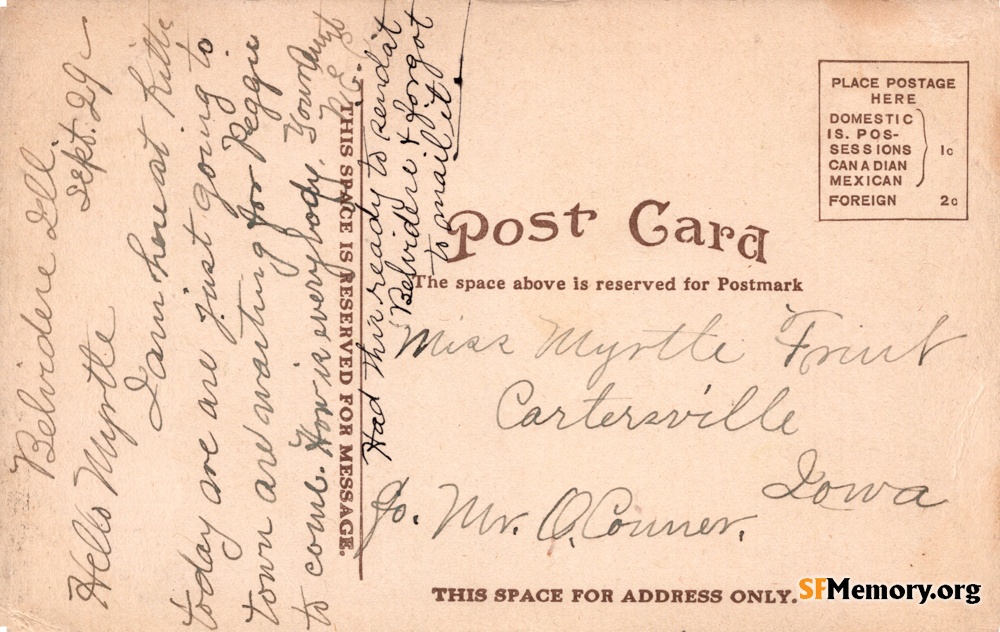 Belvidere Ill.
Sept. 29
Hello Myrtle
I am here at Kitts
today are are just going to
town and waiting for Peggie
to come. How is everybody, Your Aunt
Had this ready to send at
Belvidere & forgot
to mail it.
THIS SPACE IS RESERVED FOR MESSAGE.
Post Card
The space above is reserved for Postmark
PLACE POSTAGE
HERE
DOMESTIC
IS. POS-
SESSIONS
CANADIAN
MEXICAN
1c
FOREIGN 2c
Miss Myrtle Fruit
Cartersville
Iowa
Mr. O. Conner.
THIS SPACE FOR ADDRESS ONLY.
SFMemory.org